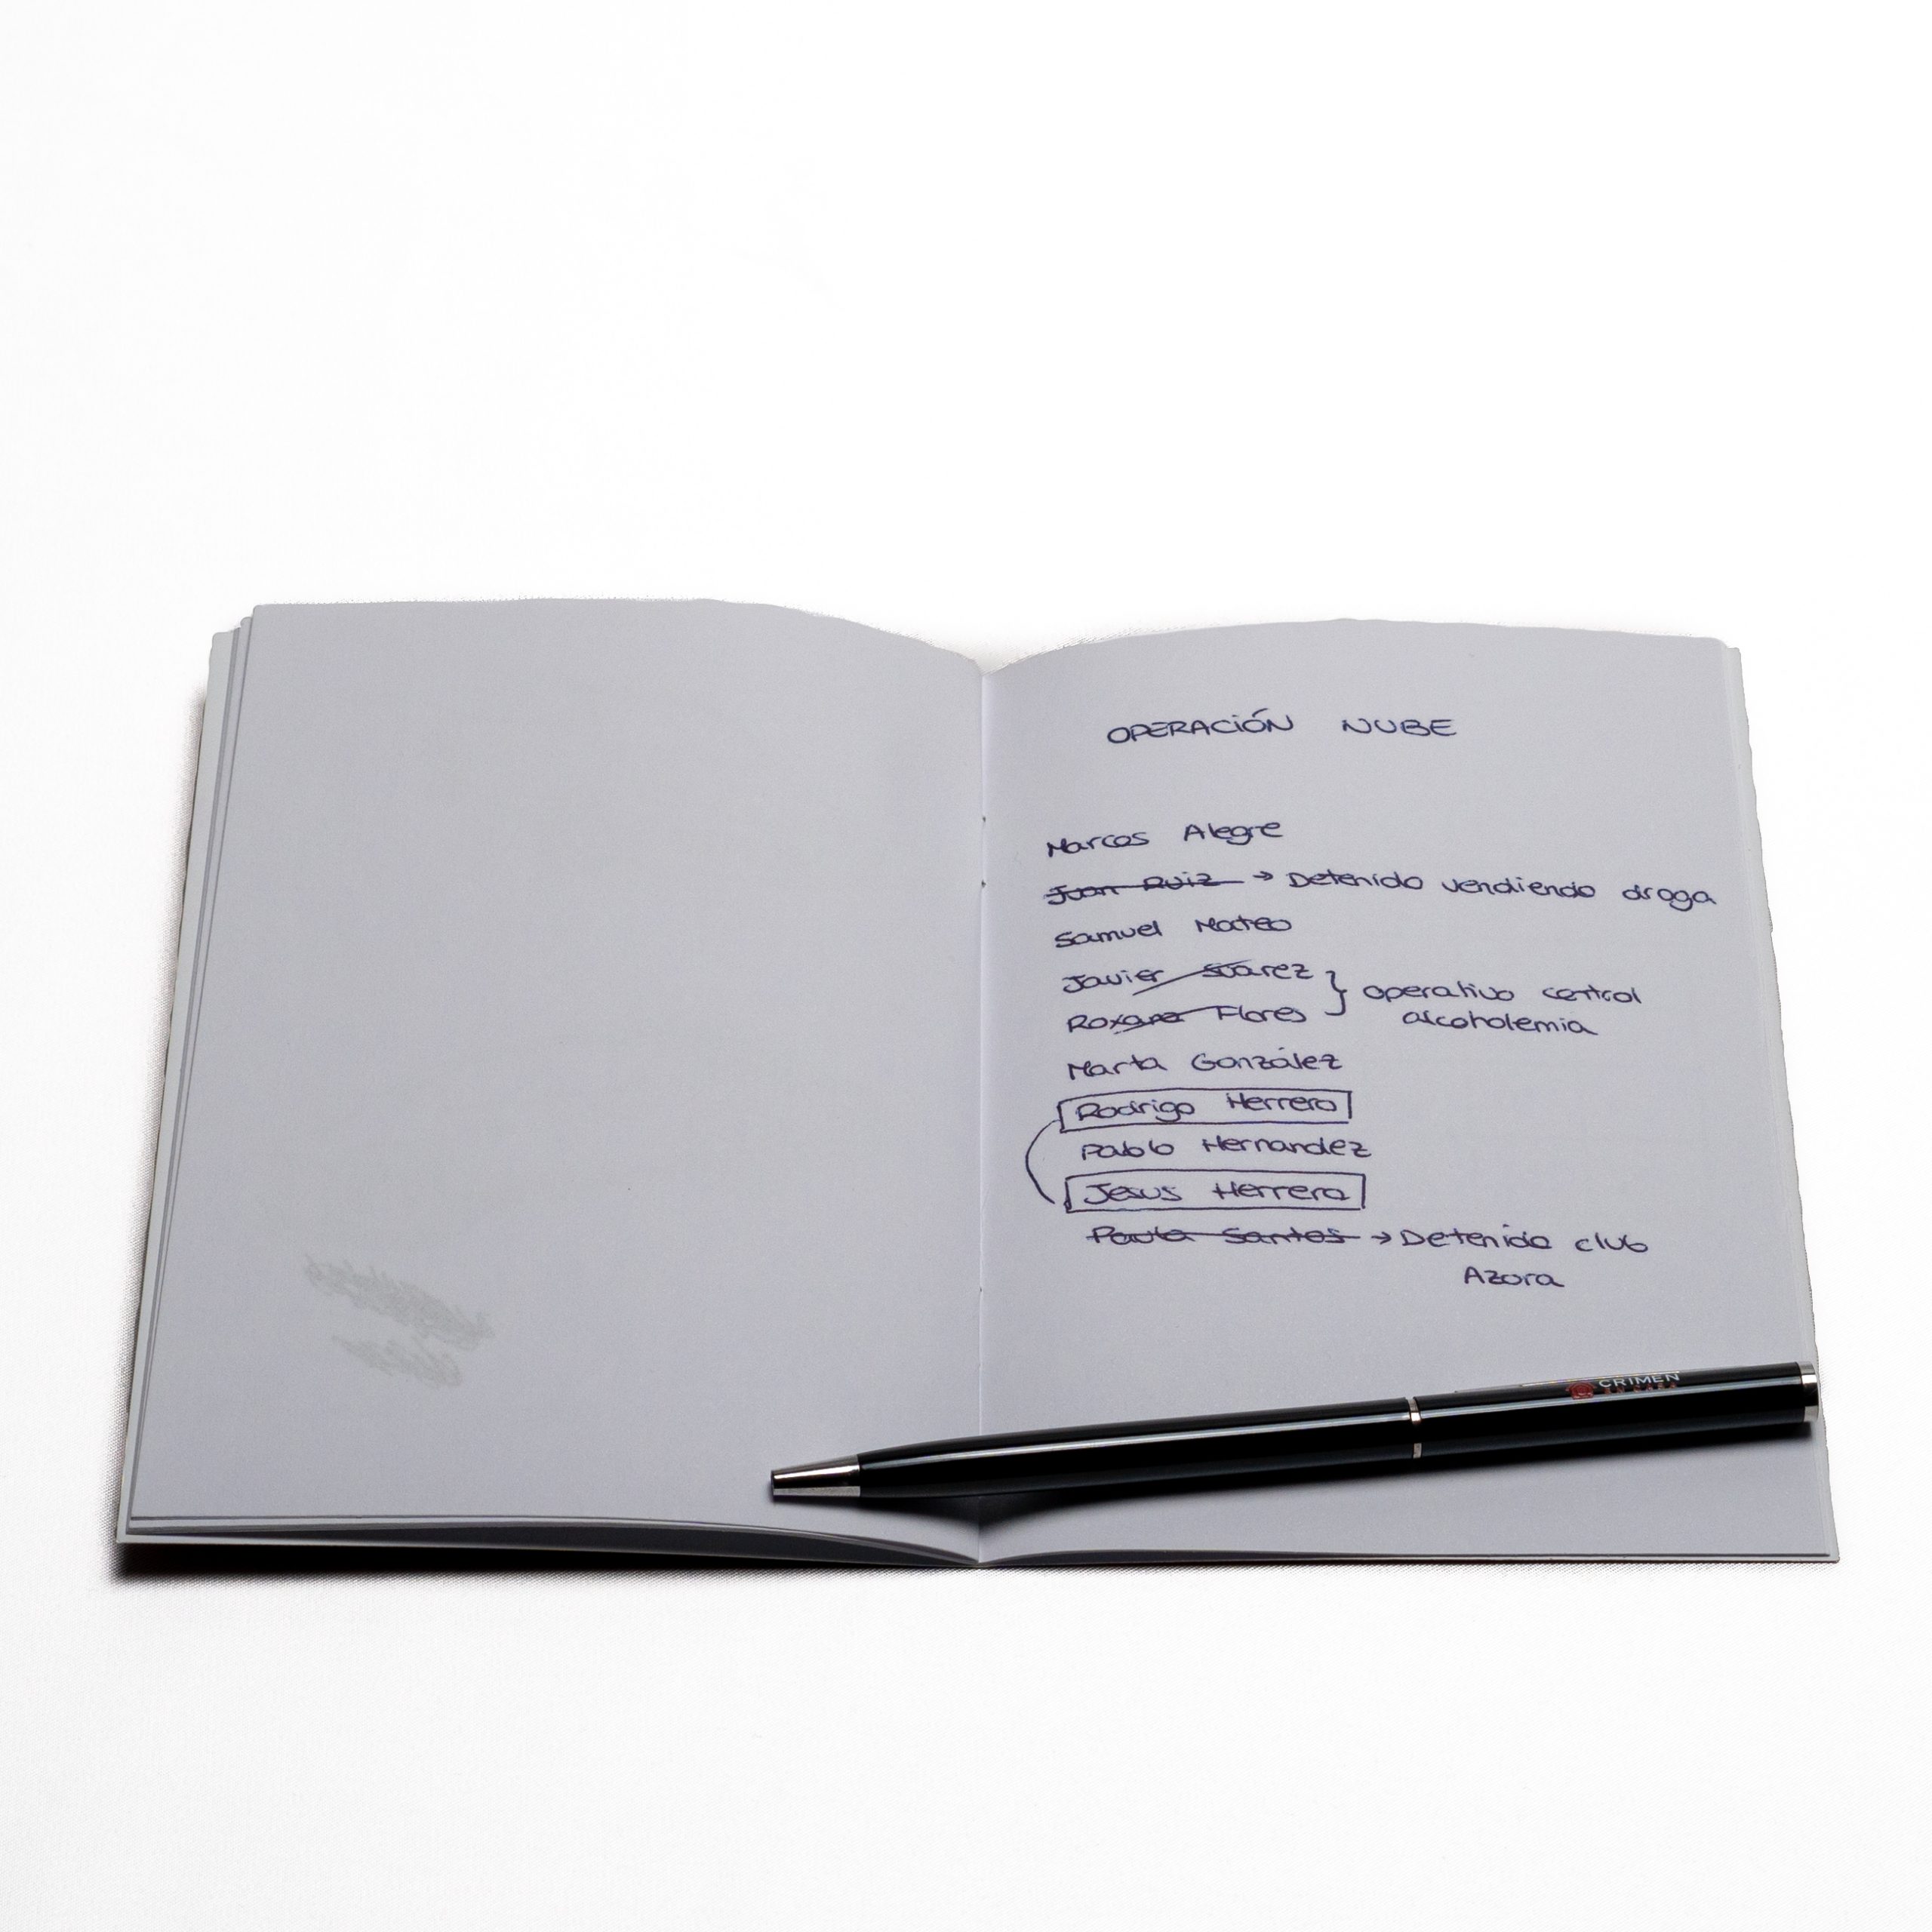 OPERACIÓN NUBE
Marcos Alegre
Juan Ruiz → Detenido vendiendo droga
Samuel Mateo
Javier Suarez } operativo control
Roxana Flores alcoholemia
Marta González
Rodrigo Herrero
Pablo Hernandez
Jesus Herrera
Paula Santos → Detenida club
Azora
CRIMEN
EN CASA